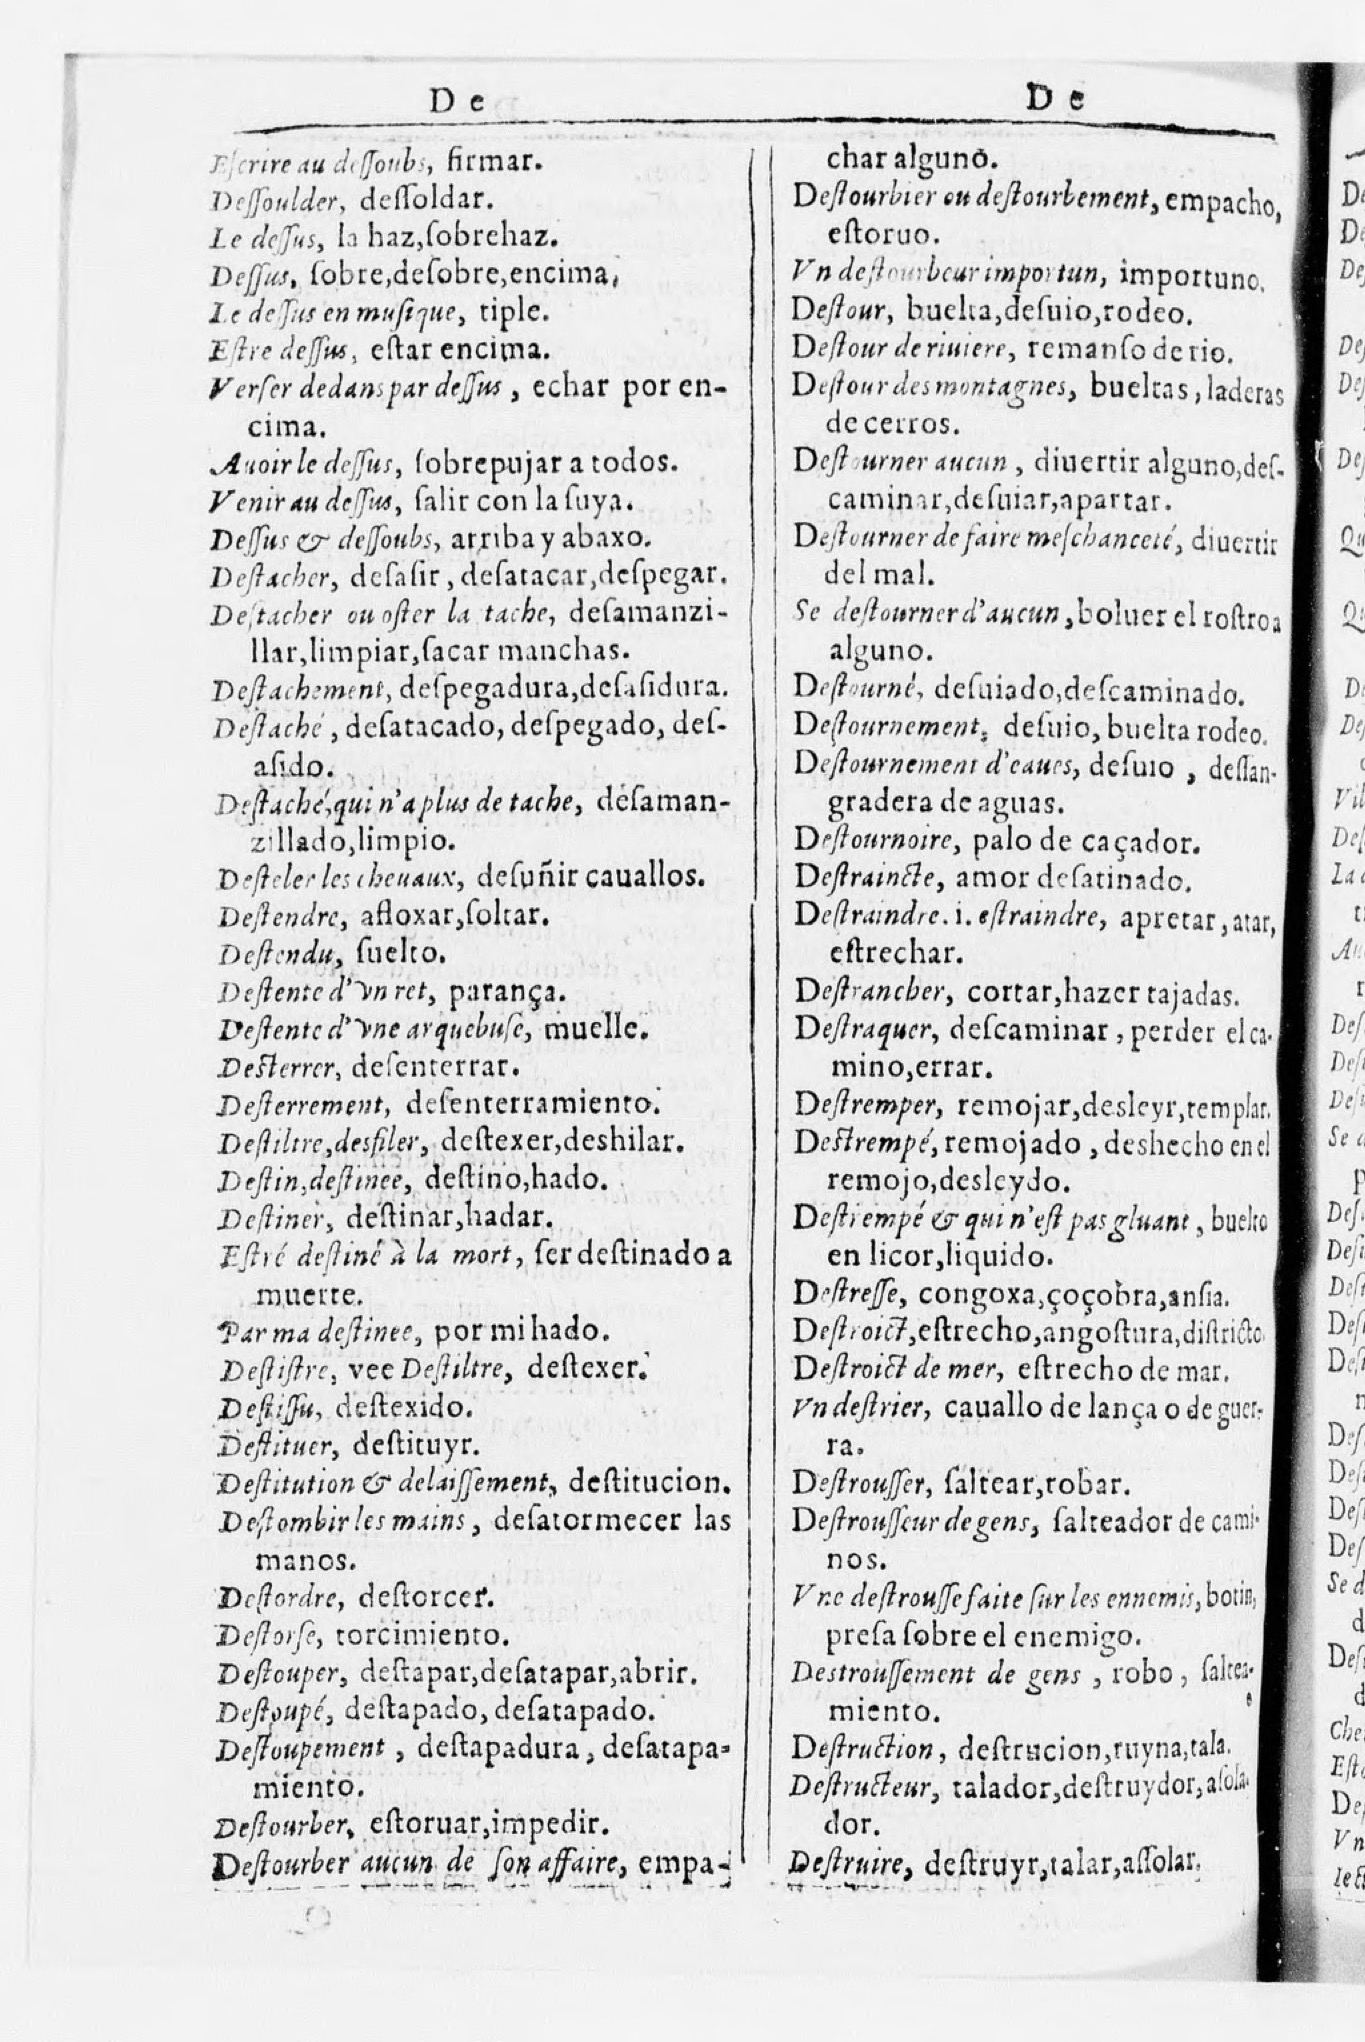 De
Eſcrire au deſſoubs, firmar.
Deſſoulder, deſſoldar.
Le deſſus, la haz,ſobrehaz.
Deſſus, ſobre,deſobre,encima,
Le deſſus en muſique, tiple.
Eſtre deſſus, eſtar encima.
Verſer dedans par deſſus, echar por en-
cima.
Auoir le deſſus, ſobrepujar a todos.
Venir au deſſus, ſalir con la ſuya.
Deſſus & deſſoubs, arriba y abaxo.
Deſtacher, deſaſir, deſatacar,deſpegar.
Deſtacher ou oſter la tache, deſamanzi-
llar,limpiar,ſacar manchas.
Deſtachement, deſpegadura,deſaſidura.
Deſtaché, deſatacado, deſpegado, deſ-
aſido.
Deſtaché,qui n'a plus de tache, deſaman-
zillado,limpio.
Deſteler les cheuaux, deſuñir cauallos.
Deſtendre, afloxar,ſoltar.
Deſtendu, ſuelto.
Deſtente d'vn ret, parança.
Deſtente d'vne arquebuſe, muelle.
Deſterrer, deſenterrar.
Deſterrement, deſenterramiento.
Deſtiltre,desfiler, deſtexer,deshilar.
Deſtin,deſtinee, deſtino,hado.
Deſtiner, deſtinar,hadar.
Eſtré deſtiné à la mort, ſer deſtinado a
muerte.
Par ma deſtinee, por mi hado.
Deſtiſtre, vee Deſtiltre, deſtexer.
Deſtiſſu, deſtexido.
Deſtituer, deſtituyr.
Deſtitution & delaiſſement, deſtitucion.
Deſtombir les mains, deſatormecer las
manos.
Deſtordre, deſtorcer.
Deſtorſe, torcimiento.
Deſtouper, deſtapar,deſatapar,abrir.
Deſtoupé, deſtapado, deſatapado.
Deſtoupement, deſtapadura, deſatapa-
miento.
Deſtourber, eſtoruar,impedir.
Deſtourber aucun de ſon affaire, empa-
De
char alguno.
Deſtourbier ou deſtourbement, empacho,
eſtoruo.
Vn deſtourbeur importun, importuno.
Deſtour, buelta,deſuio,rodeo.
Deſtour de riuiere, remanſo de rio.
Deſtour des montagnes, bueltas, laderas
de cerros.
Deſtourner aucun, diuertir alguno,deſ-
caminar,deſuiar,apartar.
Deſtourner de faire meſchanceté, diuertir
del mal.
Se deſtourner d'aucun, boluer el roſtro a
alguno.
Deſtourné, deſuiado,deſcaminado.
Deſtournement, deſuio, buelta rodeo.
Deſtournement d'eaues, deſuio, deſſan-
gradera de aguas.
Deſtournoire, palo de caçador.
Deſtraincte, amor deſatinado.
Deſtraindre. i. eſtraindre, apretar, atar,
eſtrechar.
Deſtrancher, cortar,hazer tajadas.
Deſtraquer, deſcaminar, perder el ca-
mino,errar.
Deſtremper, remojar,desleyr,templar.
Deſtrempé, remojado, deshecho en el
remojo,desleydo.
Deſtrempé & qui n'eſt pas gluant, buelto
en licor,liquido.
Deſtreſſe, congoxa,çoçobra,anſia.
Deſtroict,eſtrecho,angoſtura,diſtricto.
Deſtroict de mer, eſtrecho de mar.
Vn deſtrier, cauallo de lança o de guer-
ra.
Deſtrouſſer, ſaltear,robar.
Deſtrouſſeur de gens, ſalteador de cami-
nos.
Vne deſtrouſſe faite ſur les ennemis, botin,
preſa ſobre el enemigo.
Destrouſſement de gens, robo, ſaltea-
miento.
Deſtruction, deſtrucion,ruyna,tala.
Deſtructeur, talador,deſtruydor,aſola-
dor.
Deſtruire, deſtruyr,talar,aſſolar.